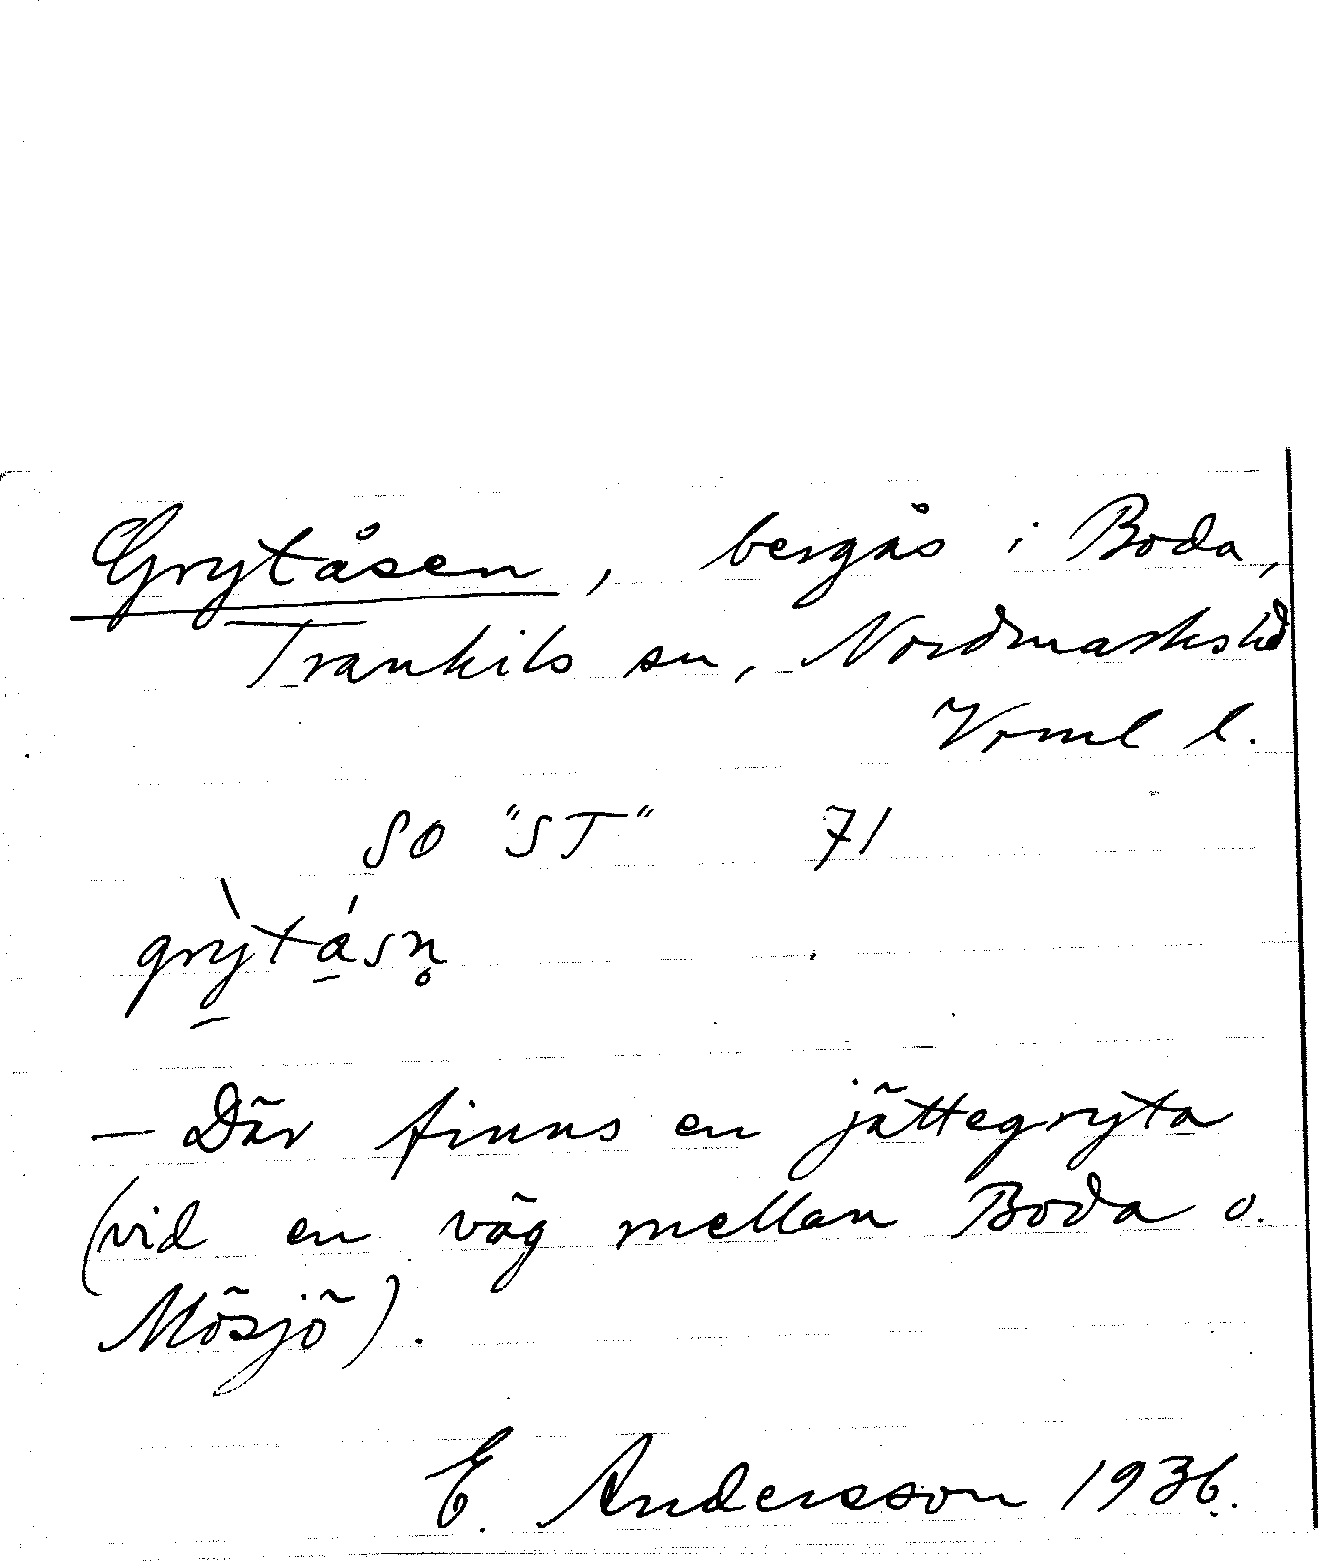 Grytåsen, bergås i Boda,
Trankils sn, Nordmarks hd
Vrml l.
SO "ST" 71
grỳtásn̥
— Där finns en jättegryta
(vid en väg mellan Boda o.
Mösjö).
E. Andersson 1936.